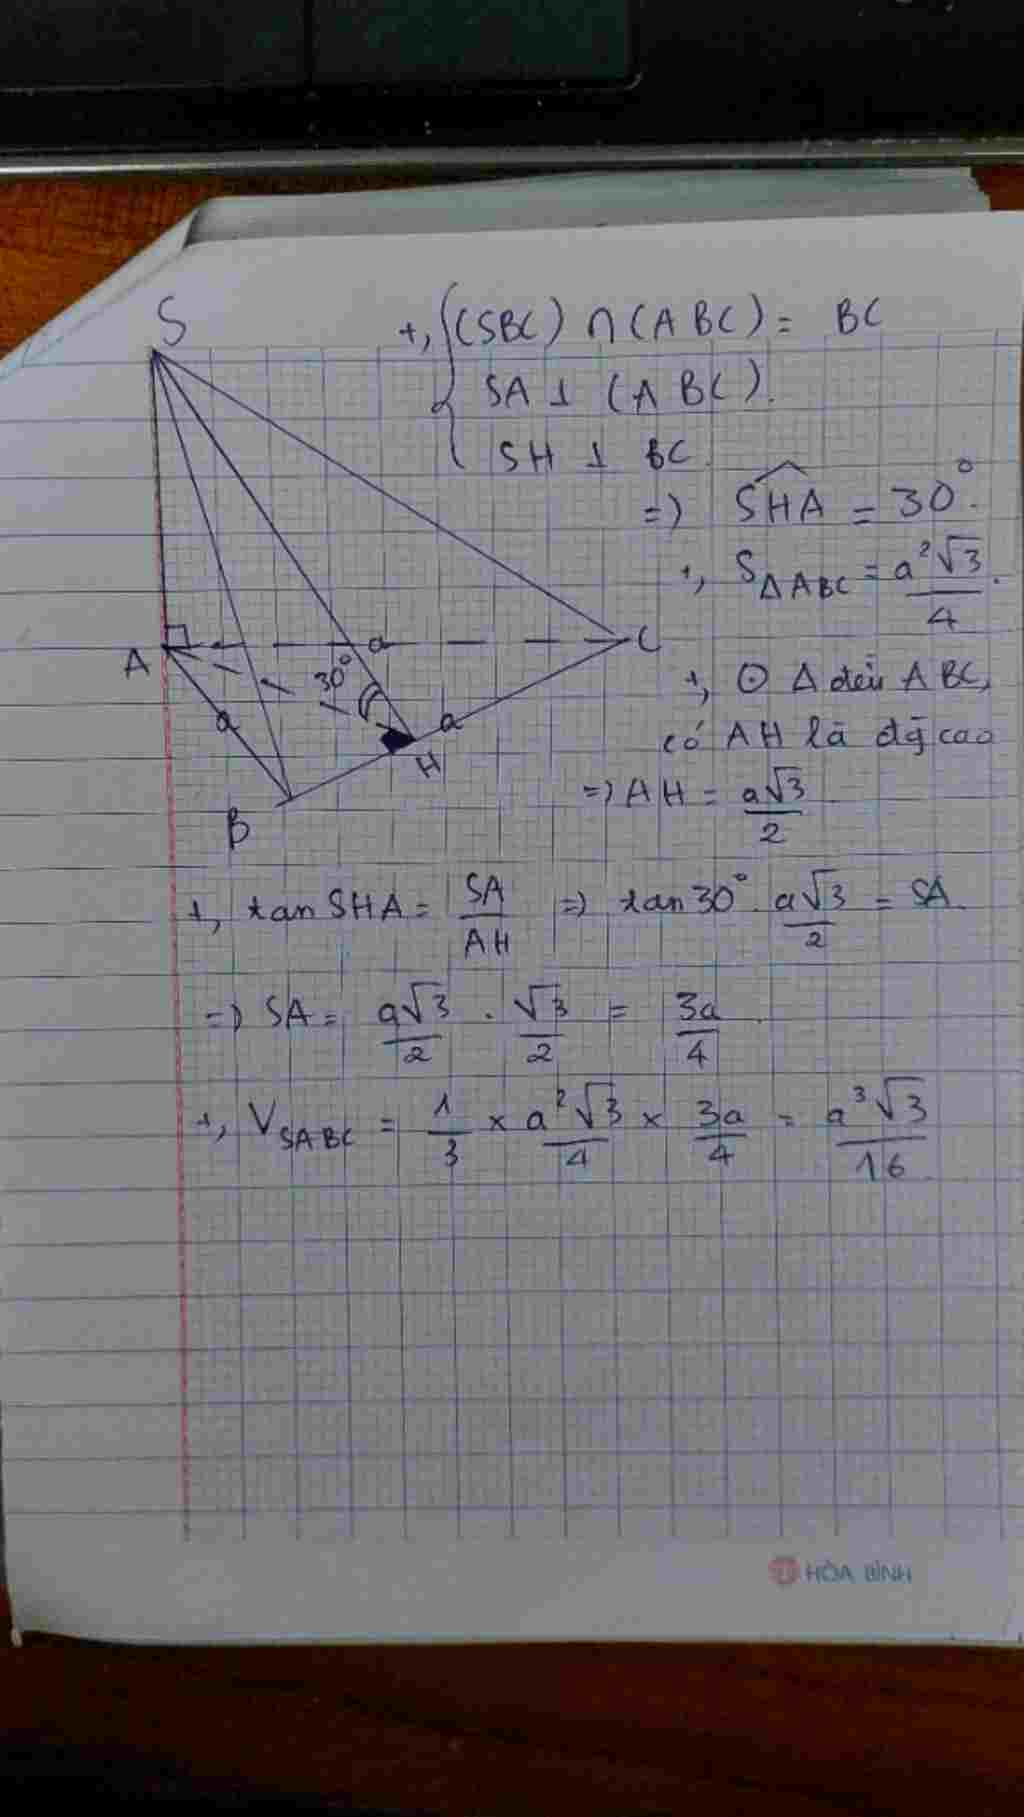 S
+, { (SBC) ∩ (ABC) = BC
SA ⊥ (ABC).
SH ⊥ BC
=) \widehat{SHA} = 30°.
+, S_{ΔABC} = \frac{a^2\sqrt{3}}{4}.
A
a
C
30°
a
a
H
B
+, ⊙ Δ đều ABC,
có AH là đg cao
=) AH = \frac{a\sqrt{3}}{2}
+, tan SHA = \frac{SA}{AH} =) tan 30°. \frac{a\sqrt{3}}{2} = SA.
=) SA = \frac{a\sqrt{3}}{2} . \frac{\sqrt{3}}{2} = \frac{3a}{4}.
+, V_{SABC} = \frac{1}{3} × \frac{a^2\sqrt{3}}{4} × \frac{3a}{4} = \frac{a^3\sqrt{3}}{16}.
HÒA BÌNH